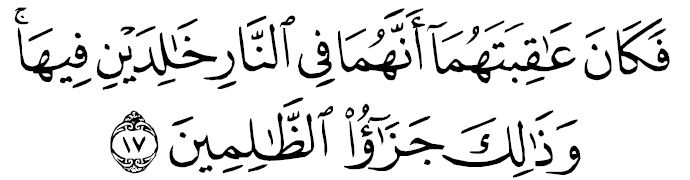 فَكَانَ عَٰقِبَتَهُمَآ أَنَّهُمَا فِي ٱلنَّارِ خَٰلِدَيْنِ فِيهَاۚ
وَذَٰلِكَ جَزَٰٓؤُاْ ٱلظَّٰلِمِينَ ١٧